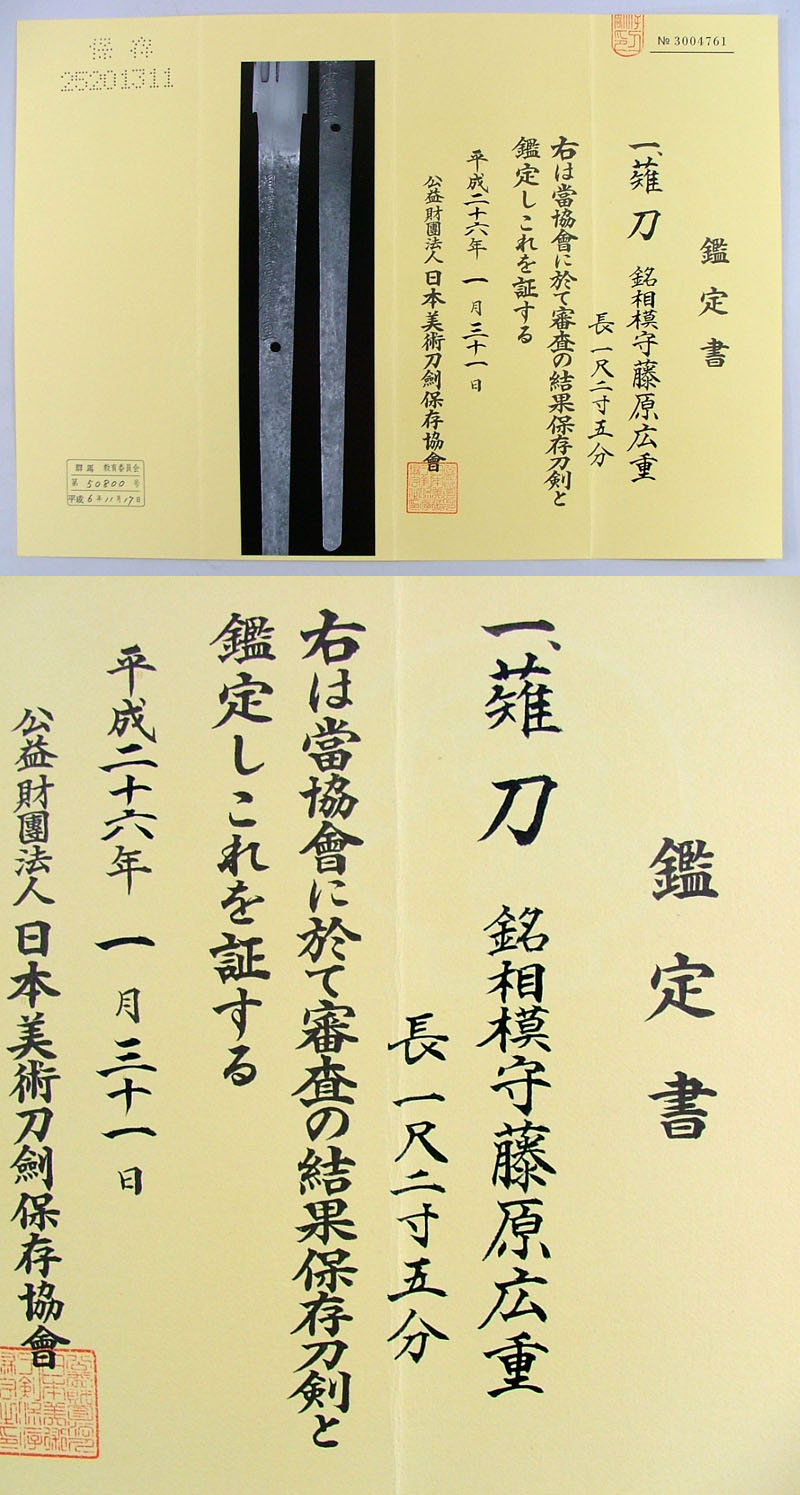 保存
25201311
№ 3004761
鑑定書
一、薙刀 銘相模守藤原広重
長一尺二寸五分
右は當協會に於て審査の結果保存刀剣と
鑑定しこれを証する
平成二十六年 一月三十一日
公益財團法人 日本美術刀劍保存協會
群馬 教育委員会
第 50800 号
平成 6年11月17日
鑑定書
一、薙刀 銘相模守藤原広重
長一尺二寸五分
右は當協會に於て審査の結果保存刀剣と
鑑定しこれを証する
平成二十六年 一月三十一日
公益財團法人 日本美術刀劍保存協會